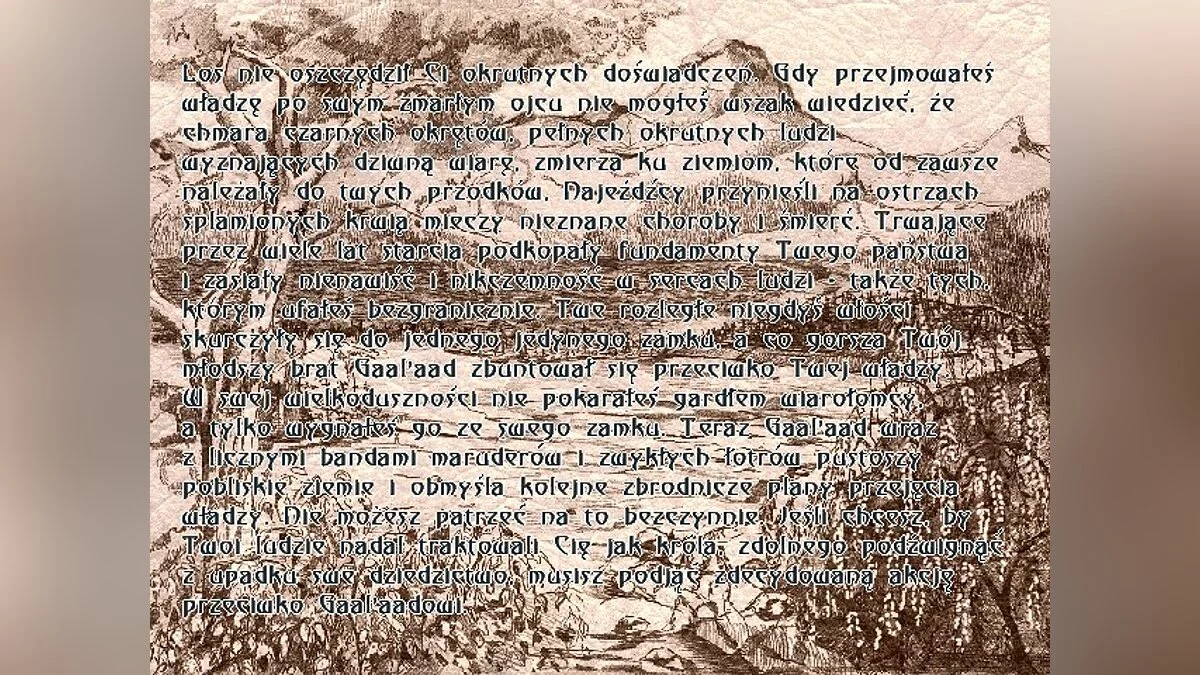 Los nie oszczędził Ci okrutnych doświadczeń. Gdy przejmowałeś
władzę po swym zmarłym ojcu nie mogłeś wszak wiedzieć, że
chmara czarnych okrętów, pełnych okrutnych ludzi
wyznających dziwną wiarę, zmierza ku ziemiom, które od zawsze
należały do twych przodków. Najeźdźcy przynieśli na ostrzach
splamionych krwią mieczy nieznane choroby i śmierć. Trwające
przez wiele lat starcia podkopały fundamenty Twego państwa
i zasiały nienawiść i nikczemność w sercach ludzi - także tych,
którym ufałeś bezgranicznie. Twe rozległe niegdyś włości
skurczyły się do jednego jedynego zamku, a co gorsza Twój
młodszy brat Gaal'aad zbuntował się przeciwko Twej władzy.
W swej wielkoduszności nie pokarałeś gardłem wiarołomcy,
a tylko wygnałeś go ze swego zamku. Teraz Gaal'aad wraz
z licznymi bandami maruderów i zwykłych łotrów pustoszy
pobliskie ziemie i obmyśla kolejne zbrodnicze plany przejęcia
władzy. Nie możesz patrzeć na to bezczynnie. Jeśli chcesz, by
Twoi ludzie nadal traktowali Cię jak króla, zdolnego podźwignąć
z upadku swe dziedzictwo, musisz podjąć zdecydowaną akcję
przeciwko Gaal'aadowi.